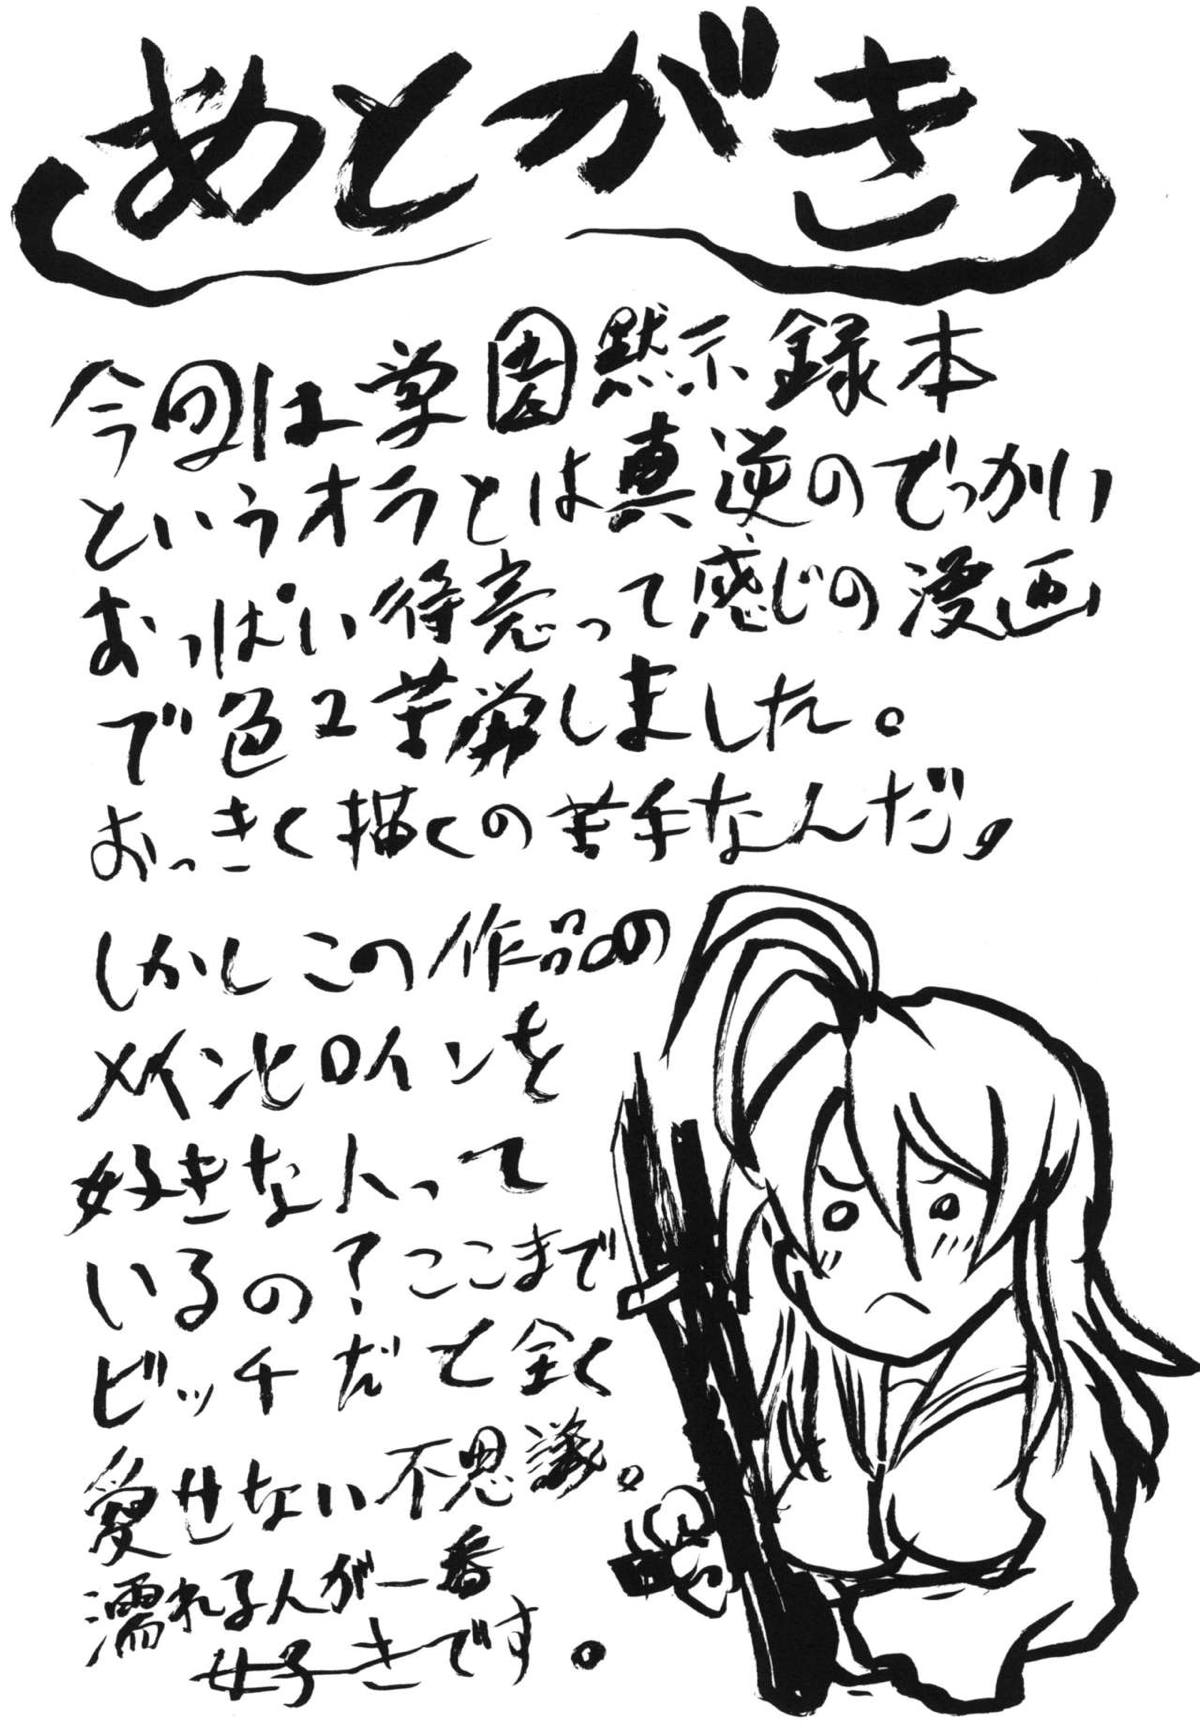 あとがき
今回は学園黙示録本
というオラとは真逆のでっかい
おっぱい待売って感じの漫画
で色々苦労しました。
おっきく描くの苦手なんだ、
しかしこの作品の
メインヒロインを
好きな人って
いるの？ここまで
ビッチだと全く
愛せない不思議。
濡れ子さんが一番
好きです。